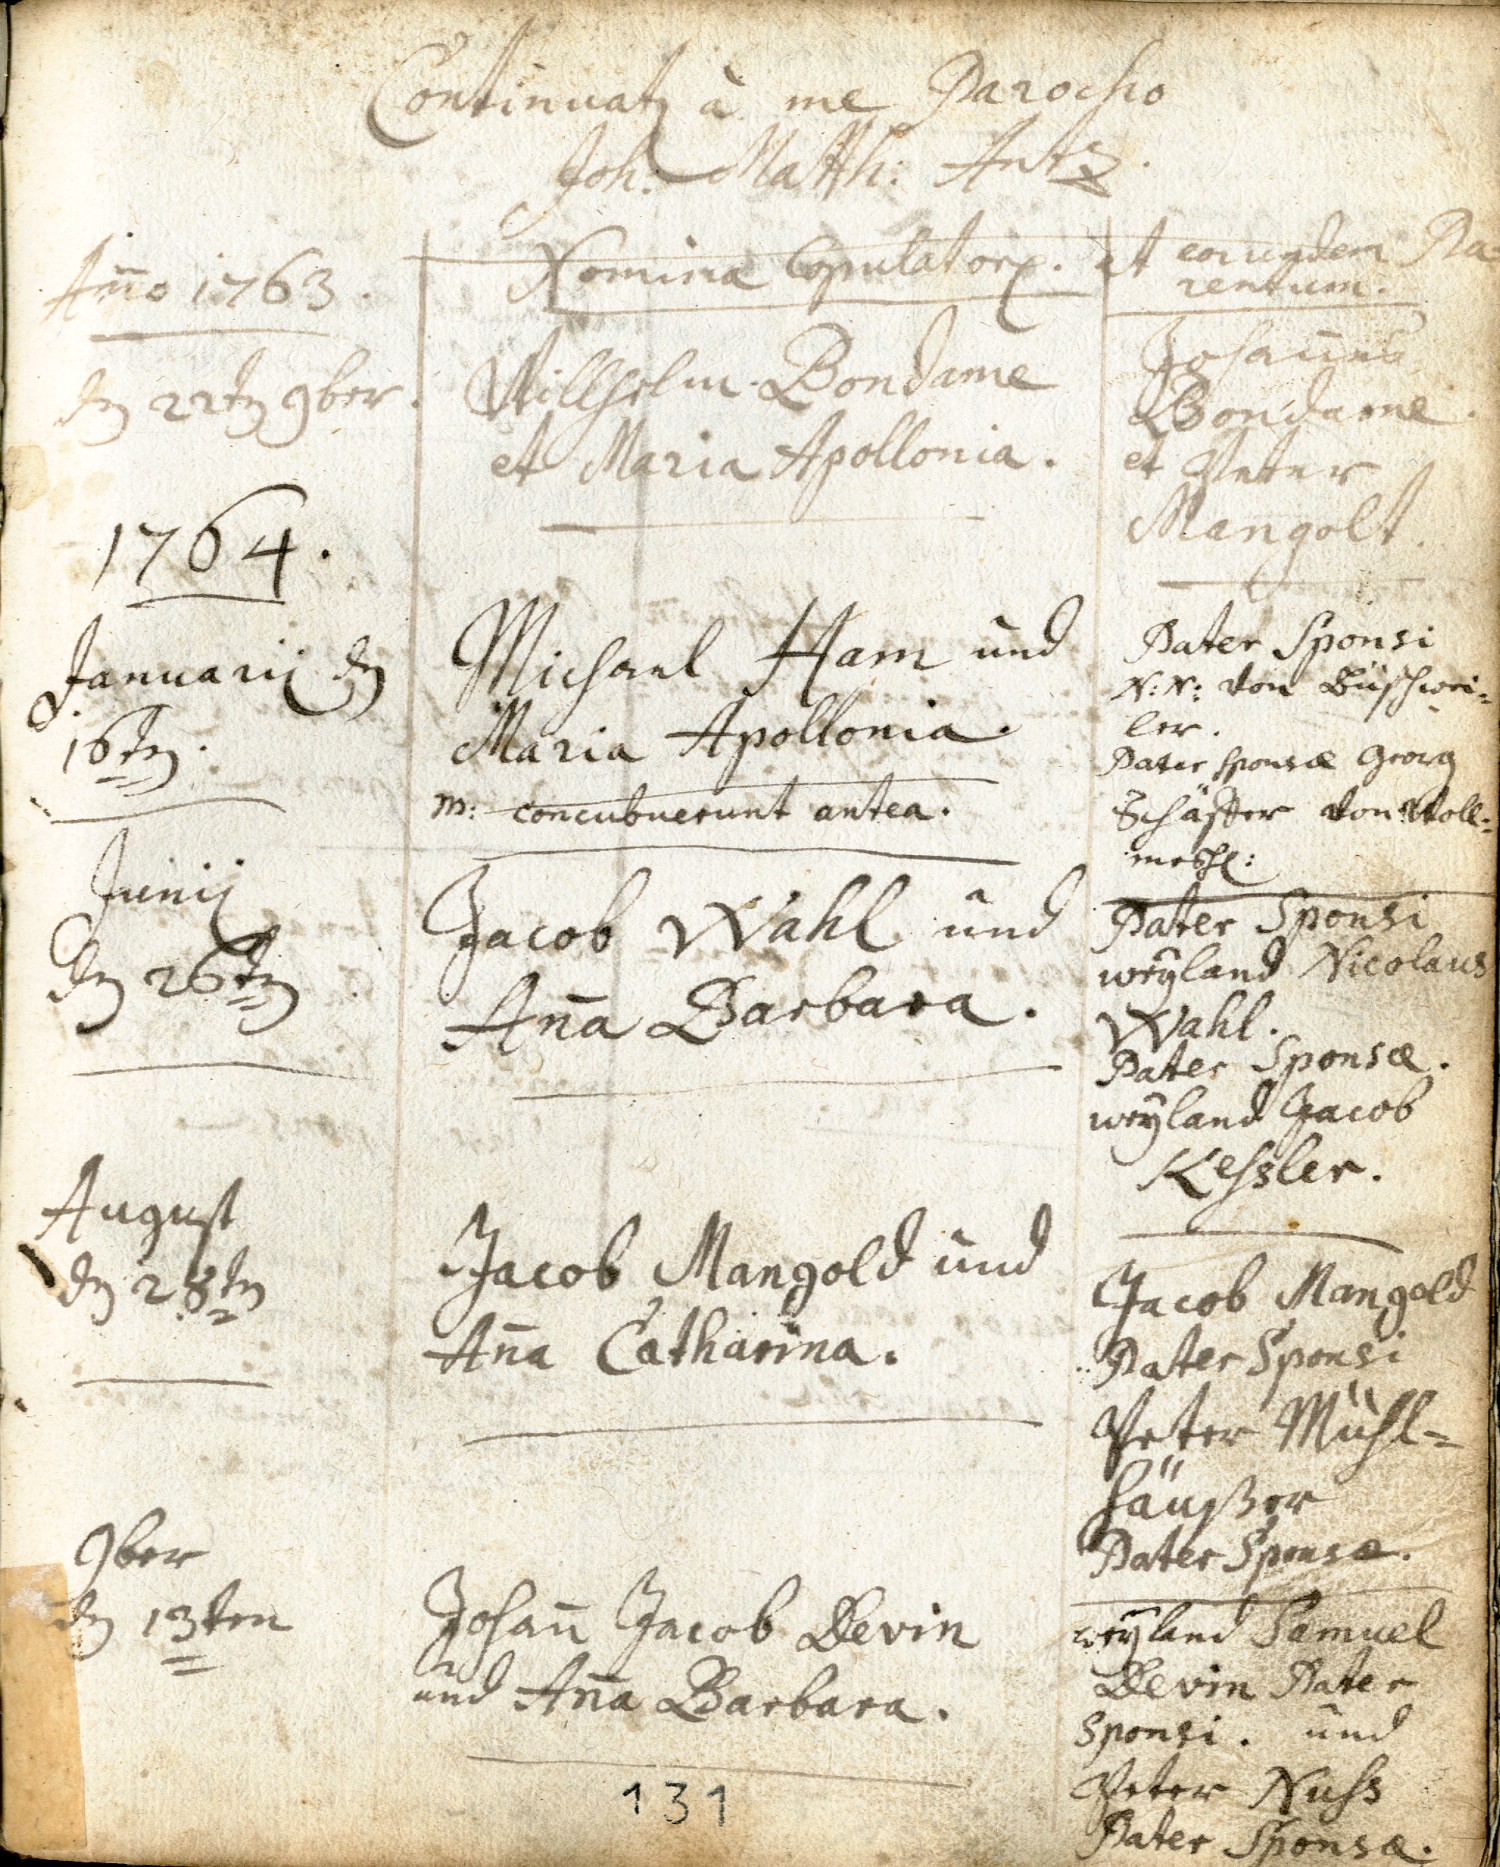 Continuatz à me Parocho
Joh: Matth: Antz.
Año 1763.
Nomina Copulatorz. et eorundem Pa=
rentum.
dn 22tn 9ber.
Willhelm Bondame
et Maria Apollonia.
Johañes
Bondame.
et Peter
Mangolt.
1764.
Januarii dn
16tn.
Michael Ham und
Maria Apollonia.
concubuerunt antea.
Pater Sponsi
N: N: von Büschwei=
ler.
Pater sponsæ Georg
Schäffer von Woll=
mesh:
Junii
dn 26tn
Jacob Wahl und
Aña Barbara.
Pater Sponsi
weÿland Nicolaus
Wahl.
Pater Sponsæ.
weÿland Jacob
Kessler.
August
dn 28tn
Jacob Mangold und
Aña Catharina.
Jacob Mangold
Pater Sponsi
Peter Mühl=
häußer
Pater Sponsæ.
9ber
dn 13ten
Johañ Jacob Devin
und Aña Barbara.
weÿland Samuel
Devin Pater
Sponsi. und
Peter Nuss
Pater Sponsæ.
131